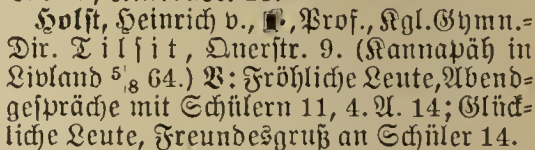 Holſt, Heinrich v., Prof., Kgl. Gymn.=
Dir. Tilſit, Querſtr. 9. (Kannapäh in
Livland 5/8 64.) V: Fröhliche Leute, Abend=
geſpräche mit Schülern 11, 4. A. 14; Glück=
liche Leute, Freundesgruß an Schüler 14.